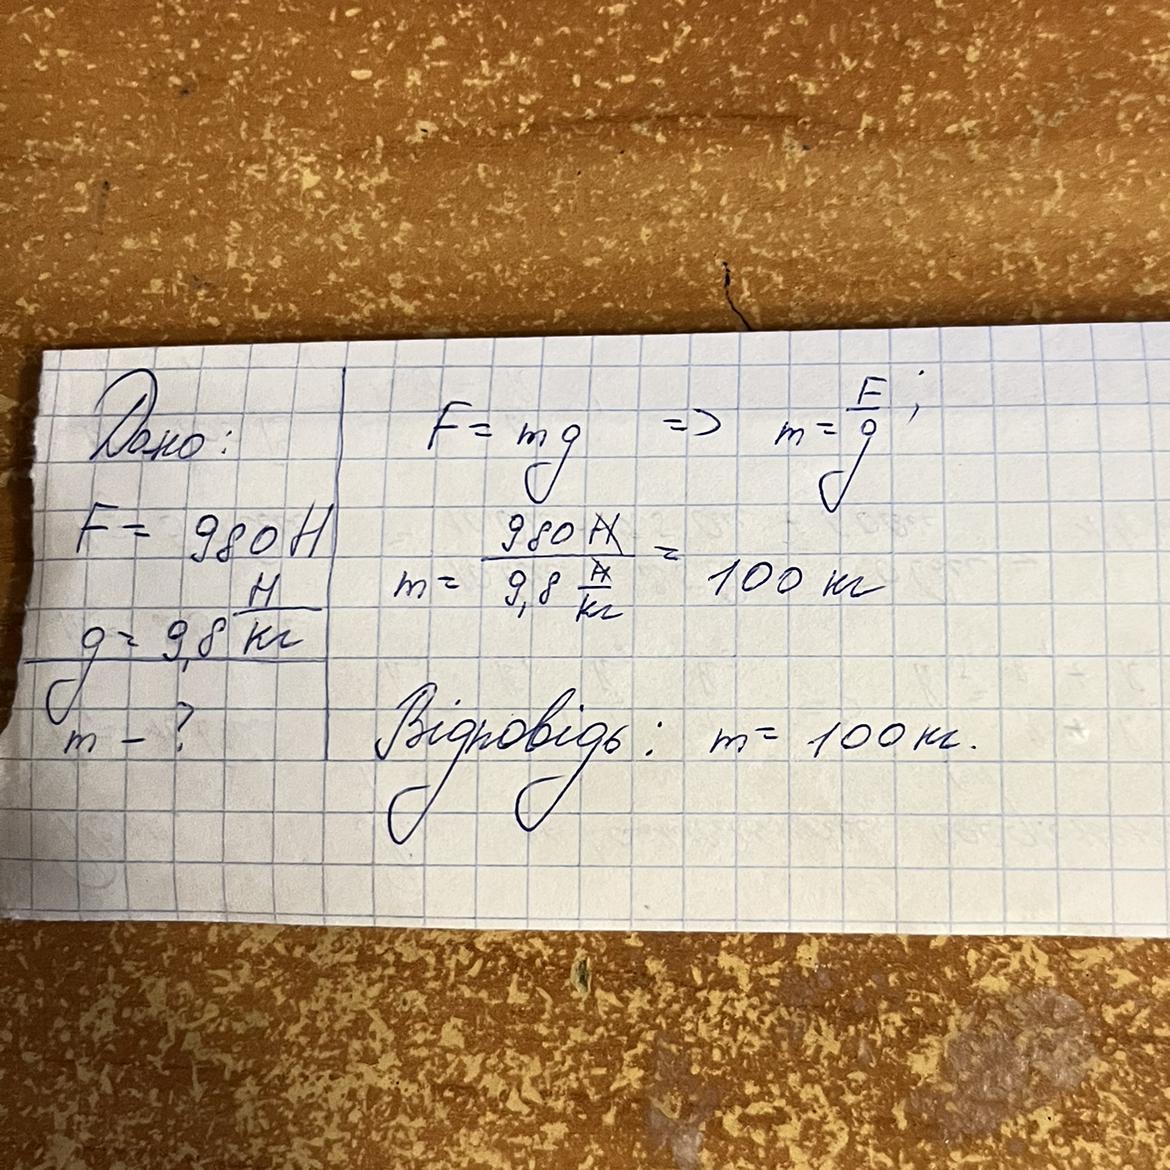 Дано:
F = 980 Н
g = 9,8 Н/кг
m - ?
F = mg => m = F/g ;
m = 980 Н / 9,8 Н/кг = 100 кг
Відповідь: m = 100 кг.